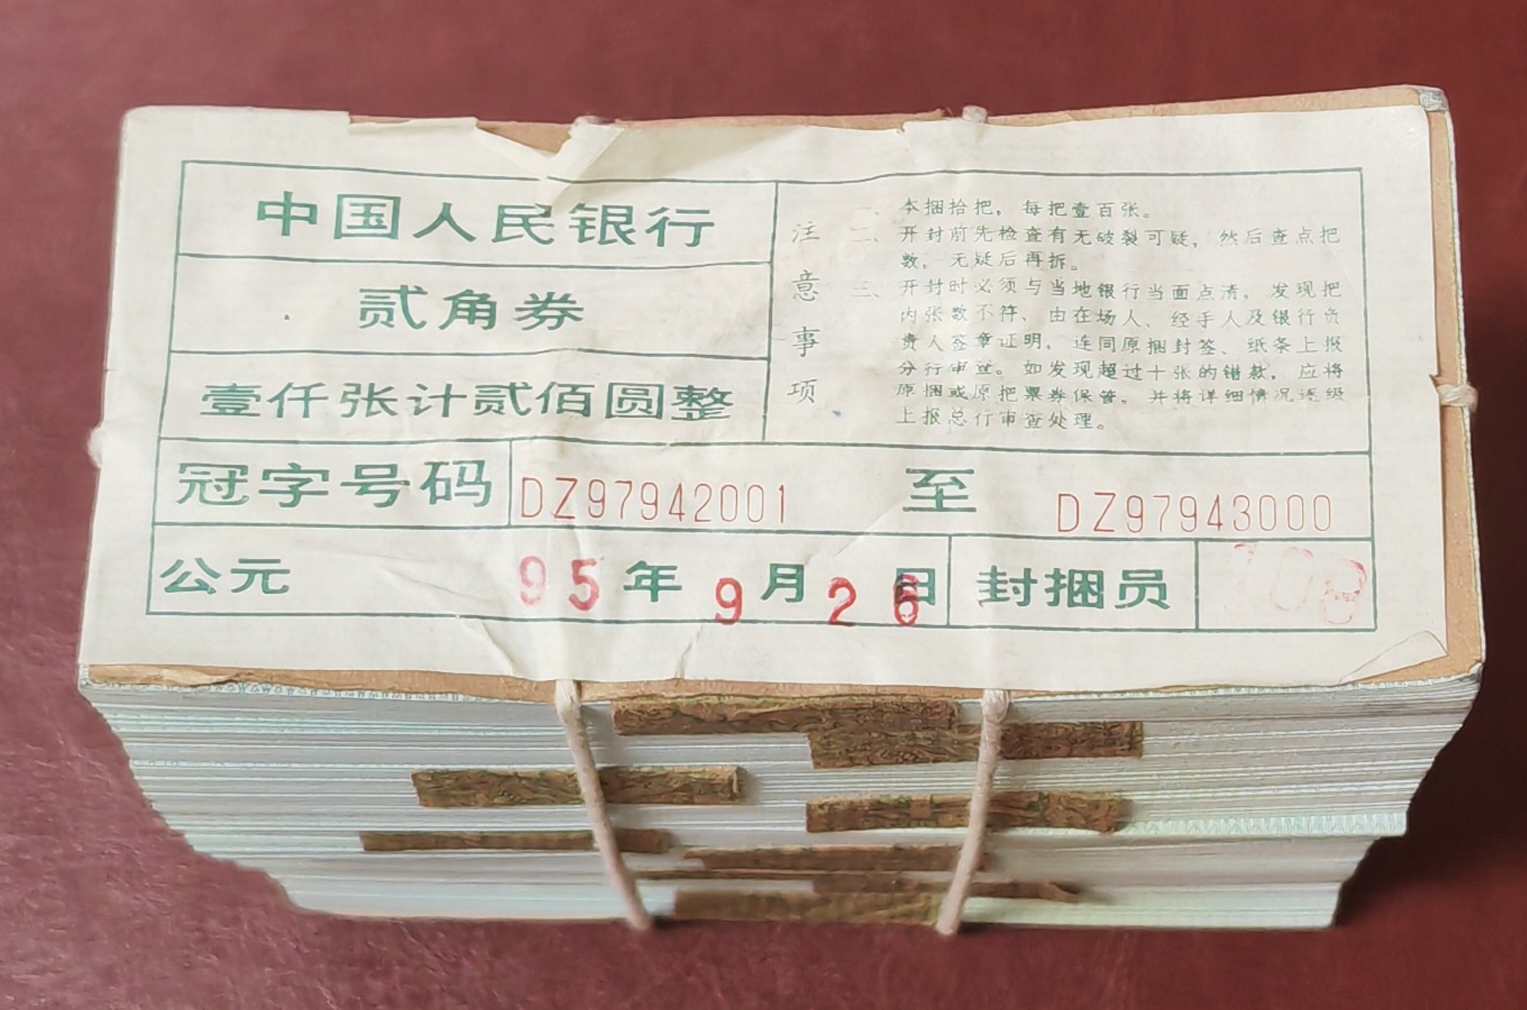 中国人民银行
贰角券
壹仟张计贰佰圆整
注意事项
一、本捆拾把，每把壹百张。
二、开封前先检查有无破裂可疑，然后查点把
数，无疑后再拆。
三、开封时必须与当地银行当面点清，发现把
内张数不符，由在场人、经手人及银行负
责人签章证明，连同原捆封签、纸条上报
分行审查。如发现超过十张的错款，应将
原捆或原把票券保管，并将详细情况逐级
上报总行审查处理。
冠字号码 DZ97942001 至 DZ97943000
公元 95年9月26日 封捆员 108